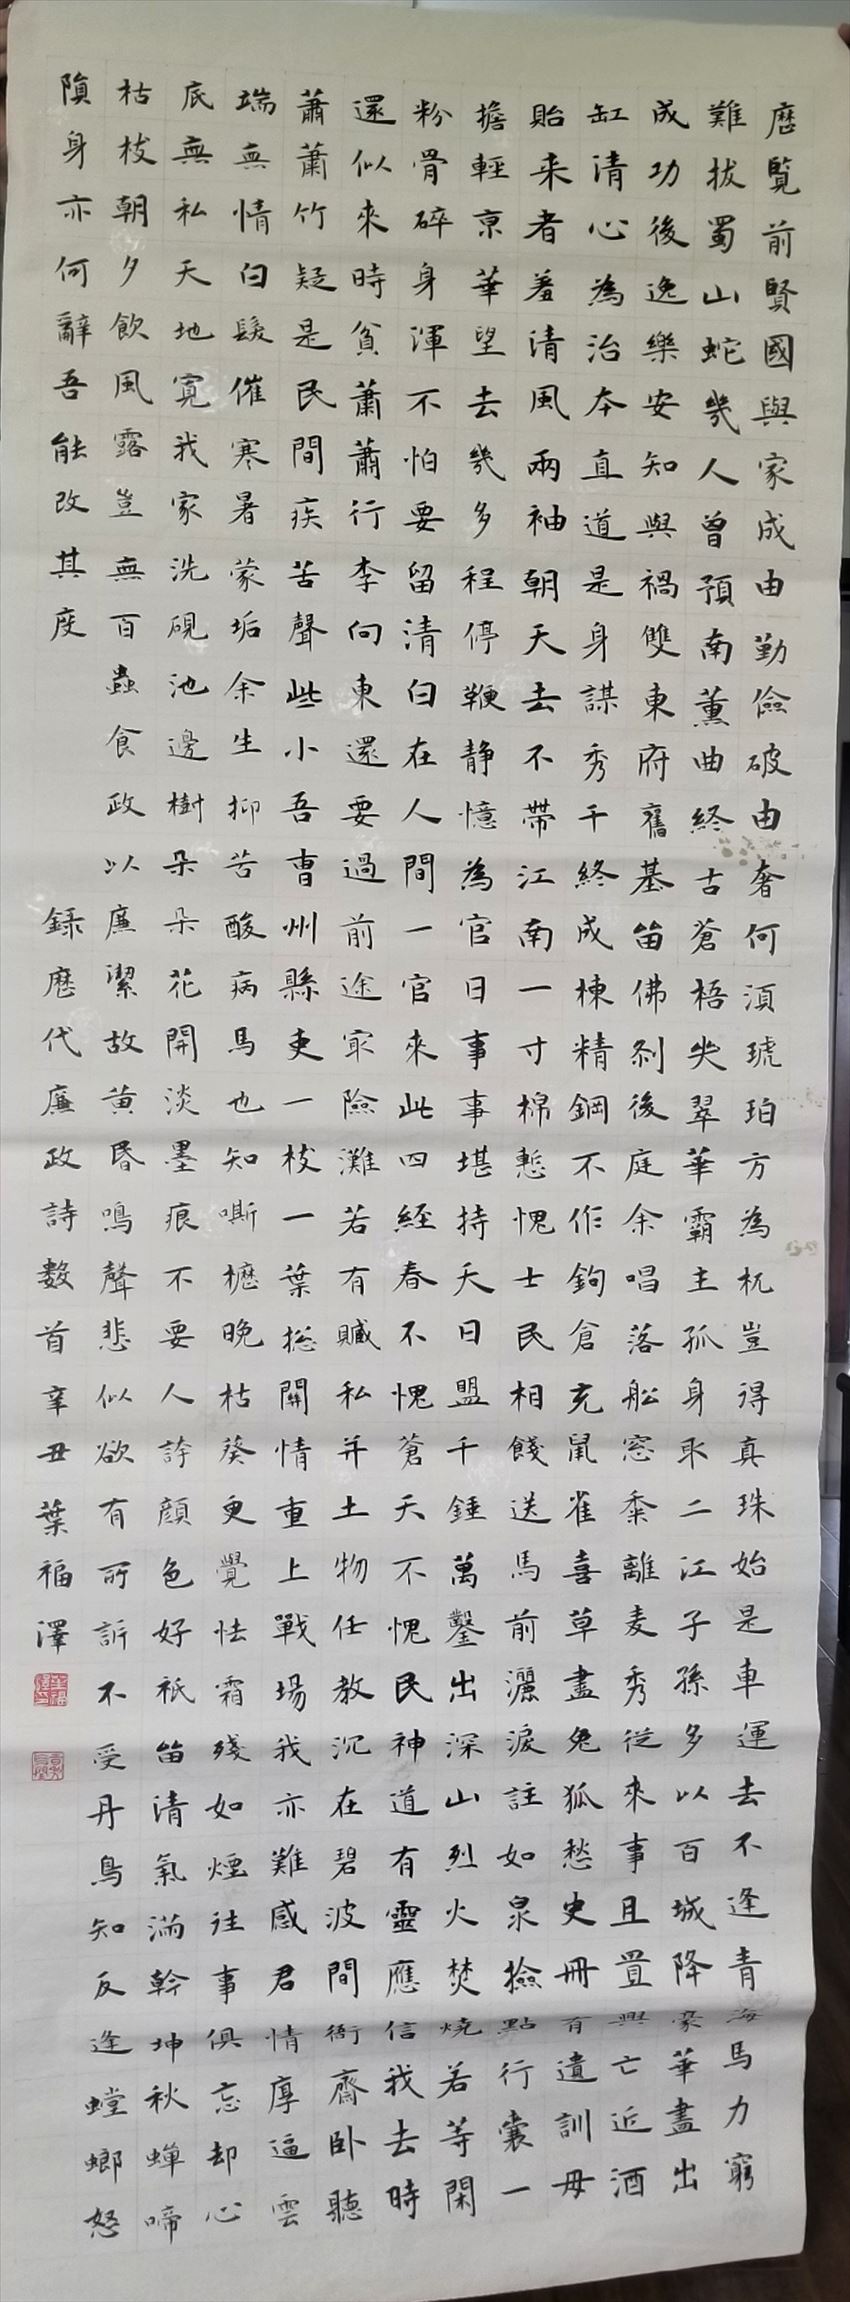 歷覽前賢國與家成由勤儉破由奢何須琥珀方為枕豈得真珠始是車運去不逢青海馬力窮
難拔蜀山蛇幾人曾預南薰曲終古蒼梧哭翠華霸主孤身取二江子孫多以百城降豪華盡出
成功後逸樂安知與禍雙東府舊基留佛刹後庭余唱落船窓黍離麦秀從來事且置興亡近酒
缸清心為治本直道是身謀秀干終成棟精鋼不作鉤倉充鼠雀喜草盡兔狐愁史冊有遺訓毋
貽来者羞清風兩袖朝天去不帶江南一寸棉慙愧士民相餞送馬前灑淚註如泉撿點行囊一
擔輕京華望去幾多程停鞭静憶為官日事事堪持天日盟千錘萬鑿出深山烈火焚燒若等閑
粉骨碎身渾不怕要留清白在人間一官來此四經春不愧蒼天不愧民神道有靈應信我去時
還似來時貧蕭蕭行李向東還要過前途冣險灘若有贓私并土物任教沉在碧波間衙齋卧聽
蕭蕭竹疑是民間疾苦聲些小吾曹州縣吏一枝一葉揔關情重上戰場我亦難感君情厚逼雲
端無情白髮催寒暑蒙垢余生抑苦酸病馬也知嘶櫪晚枯葵更覺怯霜殘如煙往事俱忘却心
底無私天地寬我家洗硯池邊樹朵朵花開淡墨痕不要人誇顔色好衹留清氣滿乾坤秋蟬啼
枯枝朝夕飲風露豈無百蟲食政以廉潔故黄昏鳴聲悲似欲有所訴不受丹鳥知反逢螳螂怒
隕身亦何辭吾能改其度
錄歷代廉政詩数首辛丑葉福澤